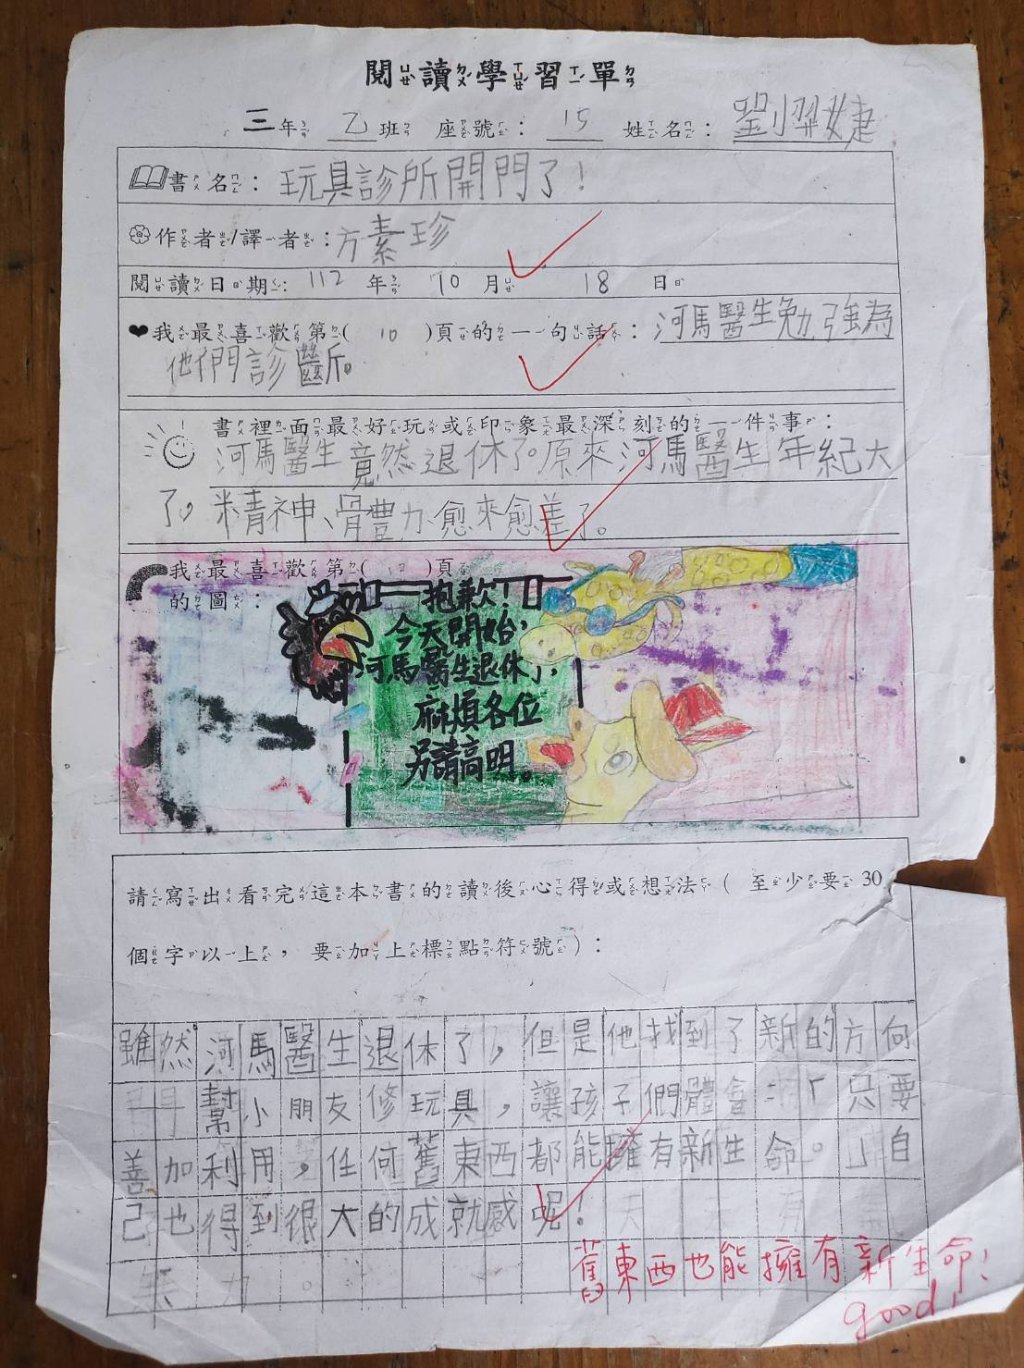 閱讀學習單
三年 乙班 座號: 15 姓名: 劉羿婕
書名: 玩具診所開門了!
作者/譯者: 方素珍
閱讀日期: 112年 10月 18日
我最喜歡第( 10 )頁的一句話: 河馬醫生勉強為
他們診斷。
書裡面最好玩或印象最深刻的一件事:
河馬醫生竟然退休了。原來河馬醫生年紀大
了。精神、體力愈來愈差了。
我最喜歡第( )頁
的圖:
抱歉!
今天開始,
河馬醫生退休了,
麻煩各位
另請高明。
請寫出看完這本書的讀後心得或想法( 至少要30
個字以上, 要加上標點符號):
雖然河馬醫生退休了,但是他找到了新的方向
幫小朋友修玩具,讓孩子們體會「只要
善加利用,任何舊東西都能擁有新生命。」自
己也得到很大的成就感呢!
舊東西也能擁有新生命!
good!